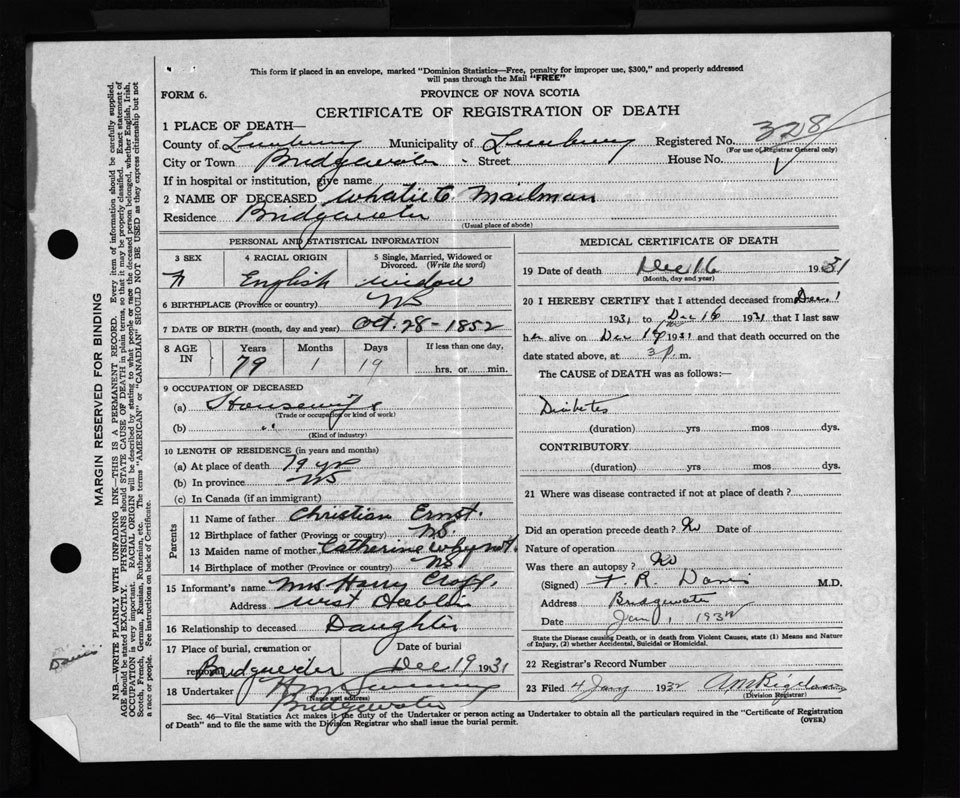 This form if placed in an envelope, marked "Dominion Statistics—Free, penalty for improper use, $300," and properly addressed
will pass through the Mail "FREE"
FORM 6.
PROVINCE OF NOVA SCOTIA
CERTIFICATE OF REGISTRATION OF DEATH
1 PLACE OF DEATH—
County of Lunenburg Municipality of Lunenburg Registered No. 328
(For use of Registrar General only)
City or Town Bridgewater Street House No.
If in hospital or institution, give name
2 NAME OF DECEASED C. Mailman
Residence Bridgewater
(Usual place of abode)
PERSONAL AND STATISTICAL INFORMATION
3 SEX 4 RACIAL ORIGIN 5 Single, Married, Widowed or Divorced. (Write the word)
F English widow
6 BIRTHPLACE (Province or country) NS
7 DATE OF BIRTH (month, day and year) Oct. 28-1852
8 AGE IN Years Months Days If less than one day,
79 1 19 hrs. or min.
9 OCCUPATION OF DECEASED
(a) Housewife
(Trade or occupation or kind of work)
(b) "
(Kind of industry)
10 LENGTH OF RESIDENCE (in years and months)
(a) At place of death 79 yrs
(b) In province NS
(c) In Canada (if an immigrant)
Parents
11 Name of father Christian Ernst.
12 Birthplace of father (Province or country) NS.
13 Maiden name of mother Catherine Whynot.
14 Birthplace of mother (Province or country) NS
15 Informant's name Mrs Harry
Address West
16 Relationship to deceased Daughter
17 Place of burial, cremation or removal Date of burial
Bridgewater Dec 19 1931
18 Undertaker
(Name and address)
Bridgewater
MEDICAL CERTIFICATE OF DEATH
19 Date of death Dec 16 1931
(Month, day and year)
20 I HEREBY CERTIFY that I attended deceased from Dec. 1
1931 to Dec 16 1931 that I last saw
h alive on Dec 16 1931 and that death occurred on the
date stated above, at 3 p. m.
The CAUSE of DEATH was as follows:—
Diabetes
(duration) yrs mos dys.
CONTRIBUTORY
(duration) yrs mos dys.
21 Where was disease contracted if not at place of death?
Did an operation precede death? No Date of
Nature of operation
Was there an autopsy? No
(Signed) F R Davis M.D.
Address Bridgewater
Date Jan 1, 1932
State the Disease causing Death, or in death from Violent Causes, state (1) Means and Nature
of Injury, (2) whether Accidental, Suicidal or Homicidal.
22 Registrar's Record Number
23 Filed 4 Jany 1932
(Division Registrar)
Sec. 46—Vital Statistics Act makes it the duty of the Undertaker or person acting as Undertaker to obtain all the particulars required in the "Certificate of Registration
of Death" and to file the same with the Division Registrar who shall issue the burial permit.
(OVER)
MARGIN RESERVED FOR BINDING
N.B.—WRITE PLAINLY WITH UNFADING INK—THIS IS A PERMANENT RECORD. Every item of information should be carefully supplied.
AGE should be stated EXACTLY. PHYSICIANS should STATE CAUSE OF DEATH in plain terms, so that it may be properly classified. Exact statement of
OCCUPATION is very important. RACIAL ORIGIN will be described by stating to what people or race the deceased person belonged, whether English, Irish,
Scotch, French, German, Russian, Ruthenian, etc. The terms "AMERICAN" or "CANADIAN" SHOULD NOT BE USED as they express citizenship but not
a race or people. See instructions on back of Certificate.
Davis